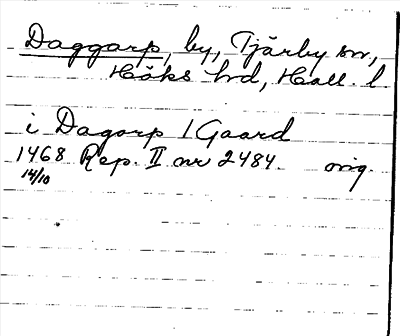 Daggarp, by, Tjärby sn,
Höks hd, Hall. l
i Dagarp 1 Gaard
1468 Rep. II nr 2484. orig.
14/10